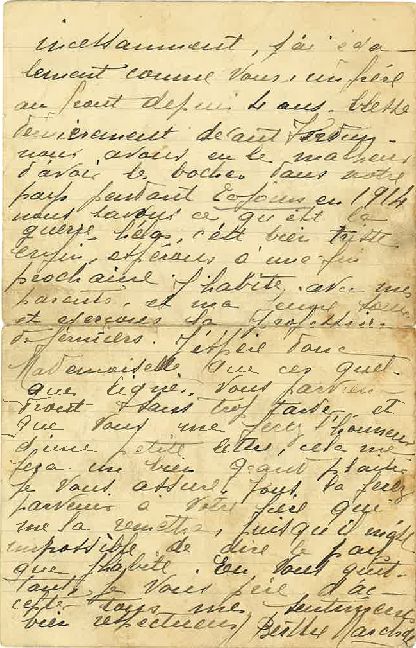 incessamment, j'ai éga-
lement comme vous un frère
au front depuis 4 ans. blessé
dernièrement devant Verdun.
nous avons eu le malheur
d'avoir les boches dans notre
pays pendant jours en 1914
nous savons ce qu'est la
guerre hélas, c'est bien triste
enfin, espérons à une fin
prochaine. J'habite avec mes
parents, et ma jeune soeur
et exerçons la profession
de fermiers. J'espère donc
Mademoiselle que ces quel-
que ligne, vous parvien
dront sans trop tarder, et
que vous me ferez l'honneur
d'une petite lettre, cela me
fera un bien grand plaisir
je vous assure. vous la ferez
parvenir à votre frère qui
me la remettra, puisqu'il m'est
impossible de dire le pays
que j'habite. En vous quit-
tant, je vous prie d'ac
cepter tous mes sentiments
bien respectueux Berthe